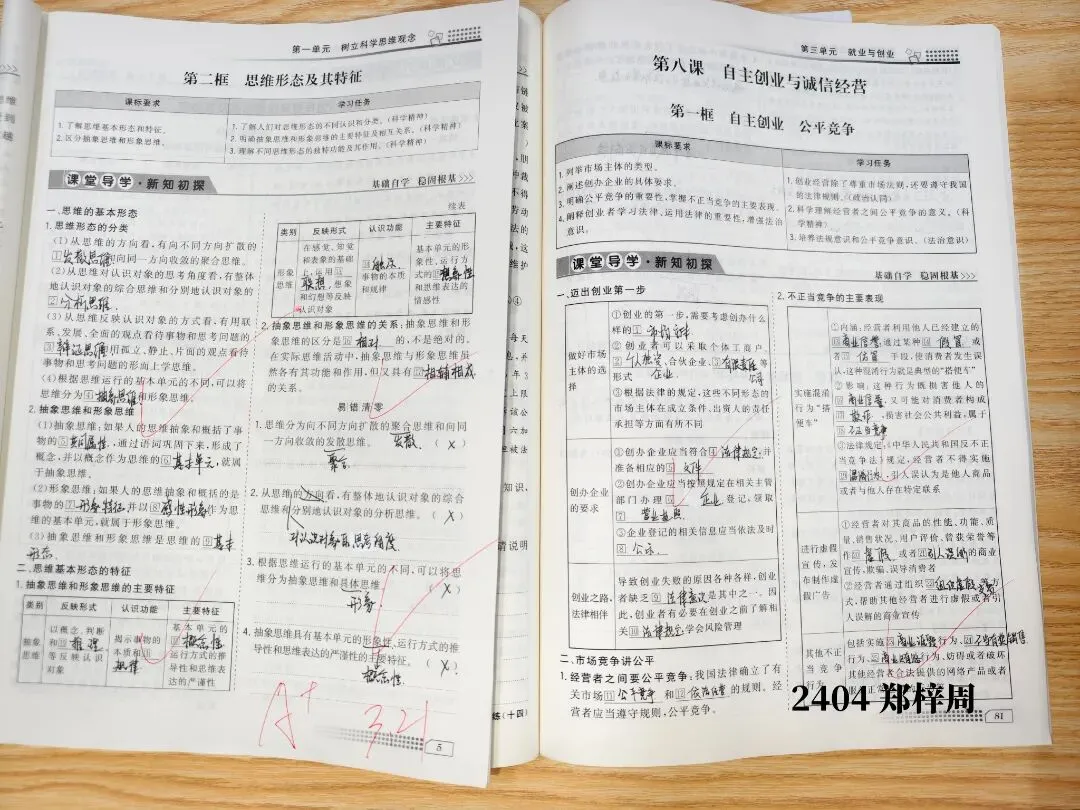 第一单元 树立科学思维观念
第二框 思维形态及其特征
课标要求
学习任务
1. 了解思维基本形态和特征。
2. 区分抽象思维和形象思维。
1. 了解人们对思维形态的不同认识和分类。(科学精神)
2. 明确抽象思维和形象思维的主要特征及相互关系。(科学精神)
3. 理解不同思维形态的独特功能及其作用。(科学精神)
课堂导学·新知初探
基础自学 稳固根基>>>
一、思维的基本形态
1. 思维形态的分类
(1)从思维的方向看,有向不同方向扩散的
①发散思维和向同一方向收敛的聚合思维。
(2)从思维对认识对象的思考角度看,有整体
地认识对象的综合思维和分别地认识对象的
②分析思维。
(3)从思维反映认识对象的方式看,有用联
系、发展、全面的观点看待事物和思考问题的
③辩证思维和用孤立、静止、片面的观点看待
事物和思考问题的形而上学思维。
(4)根据思维运行的基本单元的不同,可以将
思维分为④抽象思维和形象思维。
2. 抽象思维和形象思维
(1)抽象思维:如果人的思维抽象和概括了事
物的⑤共同属性,通过词语巩固下来,形成了
概念,并以概念作为思维的⑥基本单元,就属
于抽象思维。
(2)形象思维:如果人的思维抽象和概括的是
事物的⑦形象特征并以⑧感性形象作为思
维的基本单元,就属于形象思维。
(3)抽象思维和形象思维是思维的⑨基本
形态。
二、思维基本形态的特征
1. 抽象思维和形象思维的主要特征
类别 反映形式 认识功能 主要特征
抽象思维
以概念、判断
和⑩推理
等反映认识
对象
揭示事物的
本质和⑪
规律
基本单元的
⑫概念性、
运行方式的推
导性和思维表
达的严谨性
续表
类别 反映形式 认识功能 主要特征
形象思维
在感觉、知觉
和表象的基础
上,运用⑬
联想、想象
和幻想等反映
认识对象
⑭触及
事物的本质
和规律
基本单元的形
象性、运行方
式的⑮想象性
和思维表达的
情感性
2. 抽象思维和形象思维的关系:抽象思维和形
象思维的区分是⑯相对的,不是绝对的。
在实际思维活动中,抽象思维与形象思维虽
然各有其功能和作用,但又具有⑰相辅相成
的关系。
易错清零
1. 思维分为向不同方向扩散的聚合思维和向同
一方向收敛的发散思维。 (×)
发散
聚合
2. 从思维的方向看,有整体地认识对象的综合
思维和分别地认识对象的分析思维。 (×)
对认识对象的思考角度
3. 根据思维运行的基本单元的不同,可以将思
维分为抽象思维和具体思维。 (×)
形象
4. 抽象思维具有基本单元的形象性、运行方式的
推导性和思维表达的严谨性的主要特征。 (×)
概念性
A+ 3.21
5
练(十四)
第三单元 就业与创业
第八课 自主创业与诚信经营
第一框 自主创业 公平竞争
课标要求
学习任务
1. 列举市场主体的类型。
2. 阐述创办企业的具体要求。
3. 明确公平竞争的重要性,掌握不正当竞争的主要表现。
4. 阐释创业者学习法律、运用法律的重要性,增强法治
意识。
1. 创业经营除了尊重市场法则,还要遵守我国
的法律规则。(政治认同)
2. 科学理解经营者之间公平竞争的意义。(科
学精神)
3. 培养法规意识和公平竞争意识。(法治意识)
课堂导学·新知初探
基础自学 稳固根基>>>
一、迈出创业第一步
做好市场
主体的选择
①创业的第一步,需要考虑创办什么
样的①市场主体
②创业者可以采取个体工商户、
②个人独资、合伙企业、③有限责任等
形式 企业 公司
③根据法律的规定,这些不同形态的
市场主体在成立条件、出资人的责任
承担等方面有所不同
创办企业
的要求
①创办企业应当符合④法律规定,并
准备相应的⑤文件
②创办企业应当按照规定在相关主管
部门办理⑥企业登记,领取
⑦营业执照
③企业登记的相关信息应当依法及时
⑧公示
创业之路,
法律相伴
导致创业失败的原因各种各样,创业
者缺乏⑨法律意识是其中之一。因
此,创业者有必要在创业之前了解相
关⑩法律规定,学会风险管理
二、市场竞争讲公平
1. 经营者之间要公平竞争:我国法律确立了有
关市场⑪公平竞争和⑫依法经营的规则。经
营者应当遵守规则,公平竞争。
2. 不正当竞争的主要表现
实施混淆
行为“搭
便车”
①内涵:经营者利用他人已经建立的
⑬商业信誉,通过某种⑭假冒或
者⑮仿冒手段,使消费者发生误
认,这种混淆行为就是典型的“搭便车”
②影响:这种行为既损害他人的
⑯商业信誉,又可能对消费者构成
⑰欺诈,损害社会公共利益,属于
⑱不正当竞争
③法律规定:《中华人民共和国反不正
当竞争法》规定,经营者不得实施
⑲混淆行为,引人误认为是他人商品
或者与他人存在特定联系
进行虚假
宣传,发
布制作虚
假广告
①经营者对其商品的性能、功能、质
量、销售状况、用户评价、曾获荣誉等
作⑳虚假或者㉑引人误解的商业
宣传,欺骗、误导消费者
②经营者通过组织㉒虚假交易等方
式,帮助其他经营者进行虚假或者引
人误解的商业宣传
其他不正
当竞争
行为
包括实施㉓商业诋毁行为、㉔不当有奖销售
行为、㉕商业贿赂行为、妨碍或者破坏
其他经营者合法提供的网络产品或者
2404 郑梓周
81